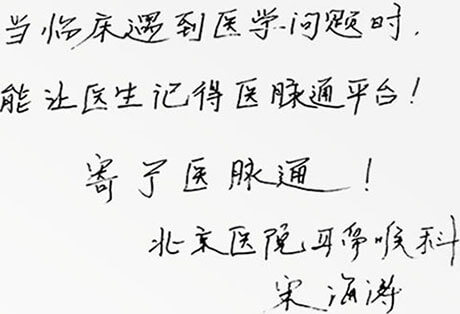 当临床遇到医学问题时,
能让医生记得医脉通平台!
寄予医脉通!
北京医院耳鼻喉科
宋海涛